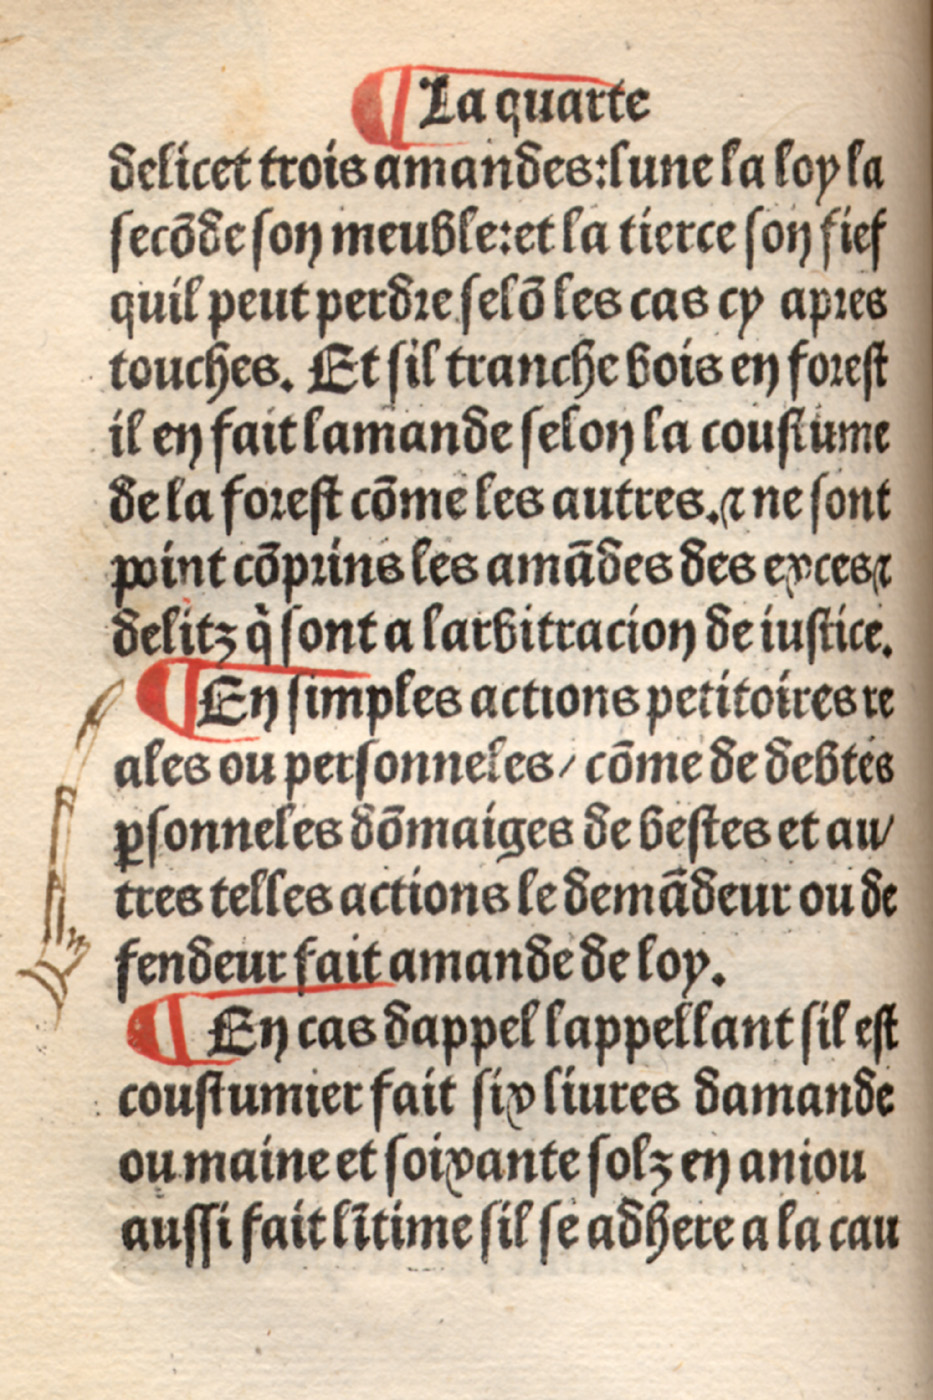 ¶ La quarte
delicet trois amandes:lune la loy la
secõde son meuble:et la tierce son fief
quil peut perdre selõ les cas cy apres
touches. Et sil tranche bois en forest
il en fait lamande selon la coustume
de la forest cõme les autres.⁊ ne sont
point cõprins les amãdes des exces⁊
delitz q̃ sont a larbitracion de iustice.
¶ En simples actions petitoires re
ales ou personneles/ cõme de debtes
ꝑsonneles dõmaiges de bestes et au/
tres telles actions le demãdeur ou de
fendeur fait amande de loy.
¶ En cas dappel lappellant sil est
coustumier fait six liures damande
ou maine et soixante solz en aniou
aussi fait lĩtime sil se adhere a la cau